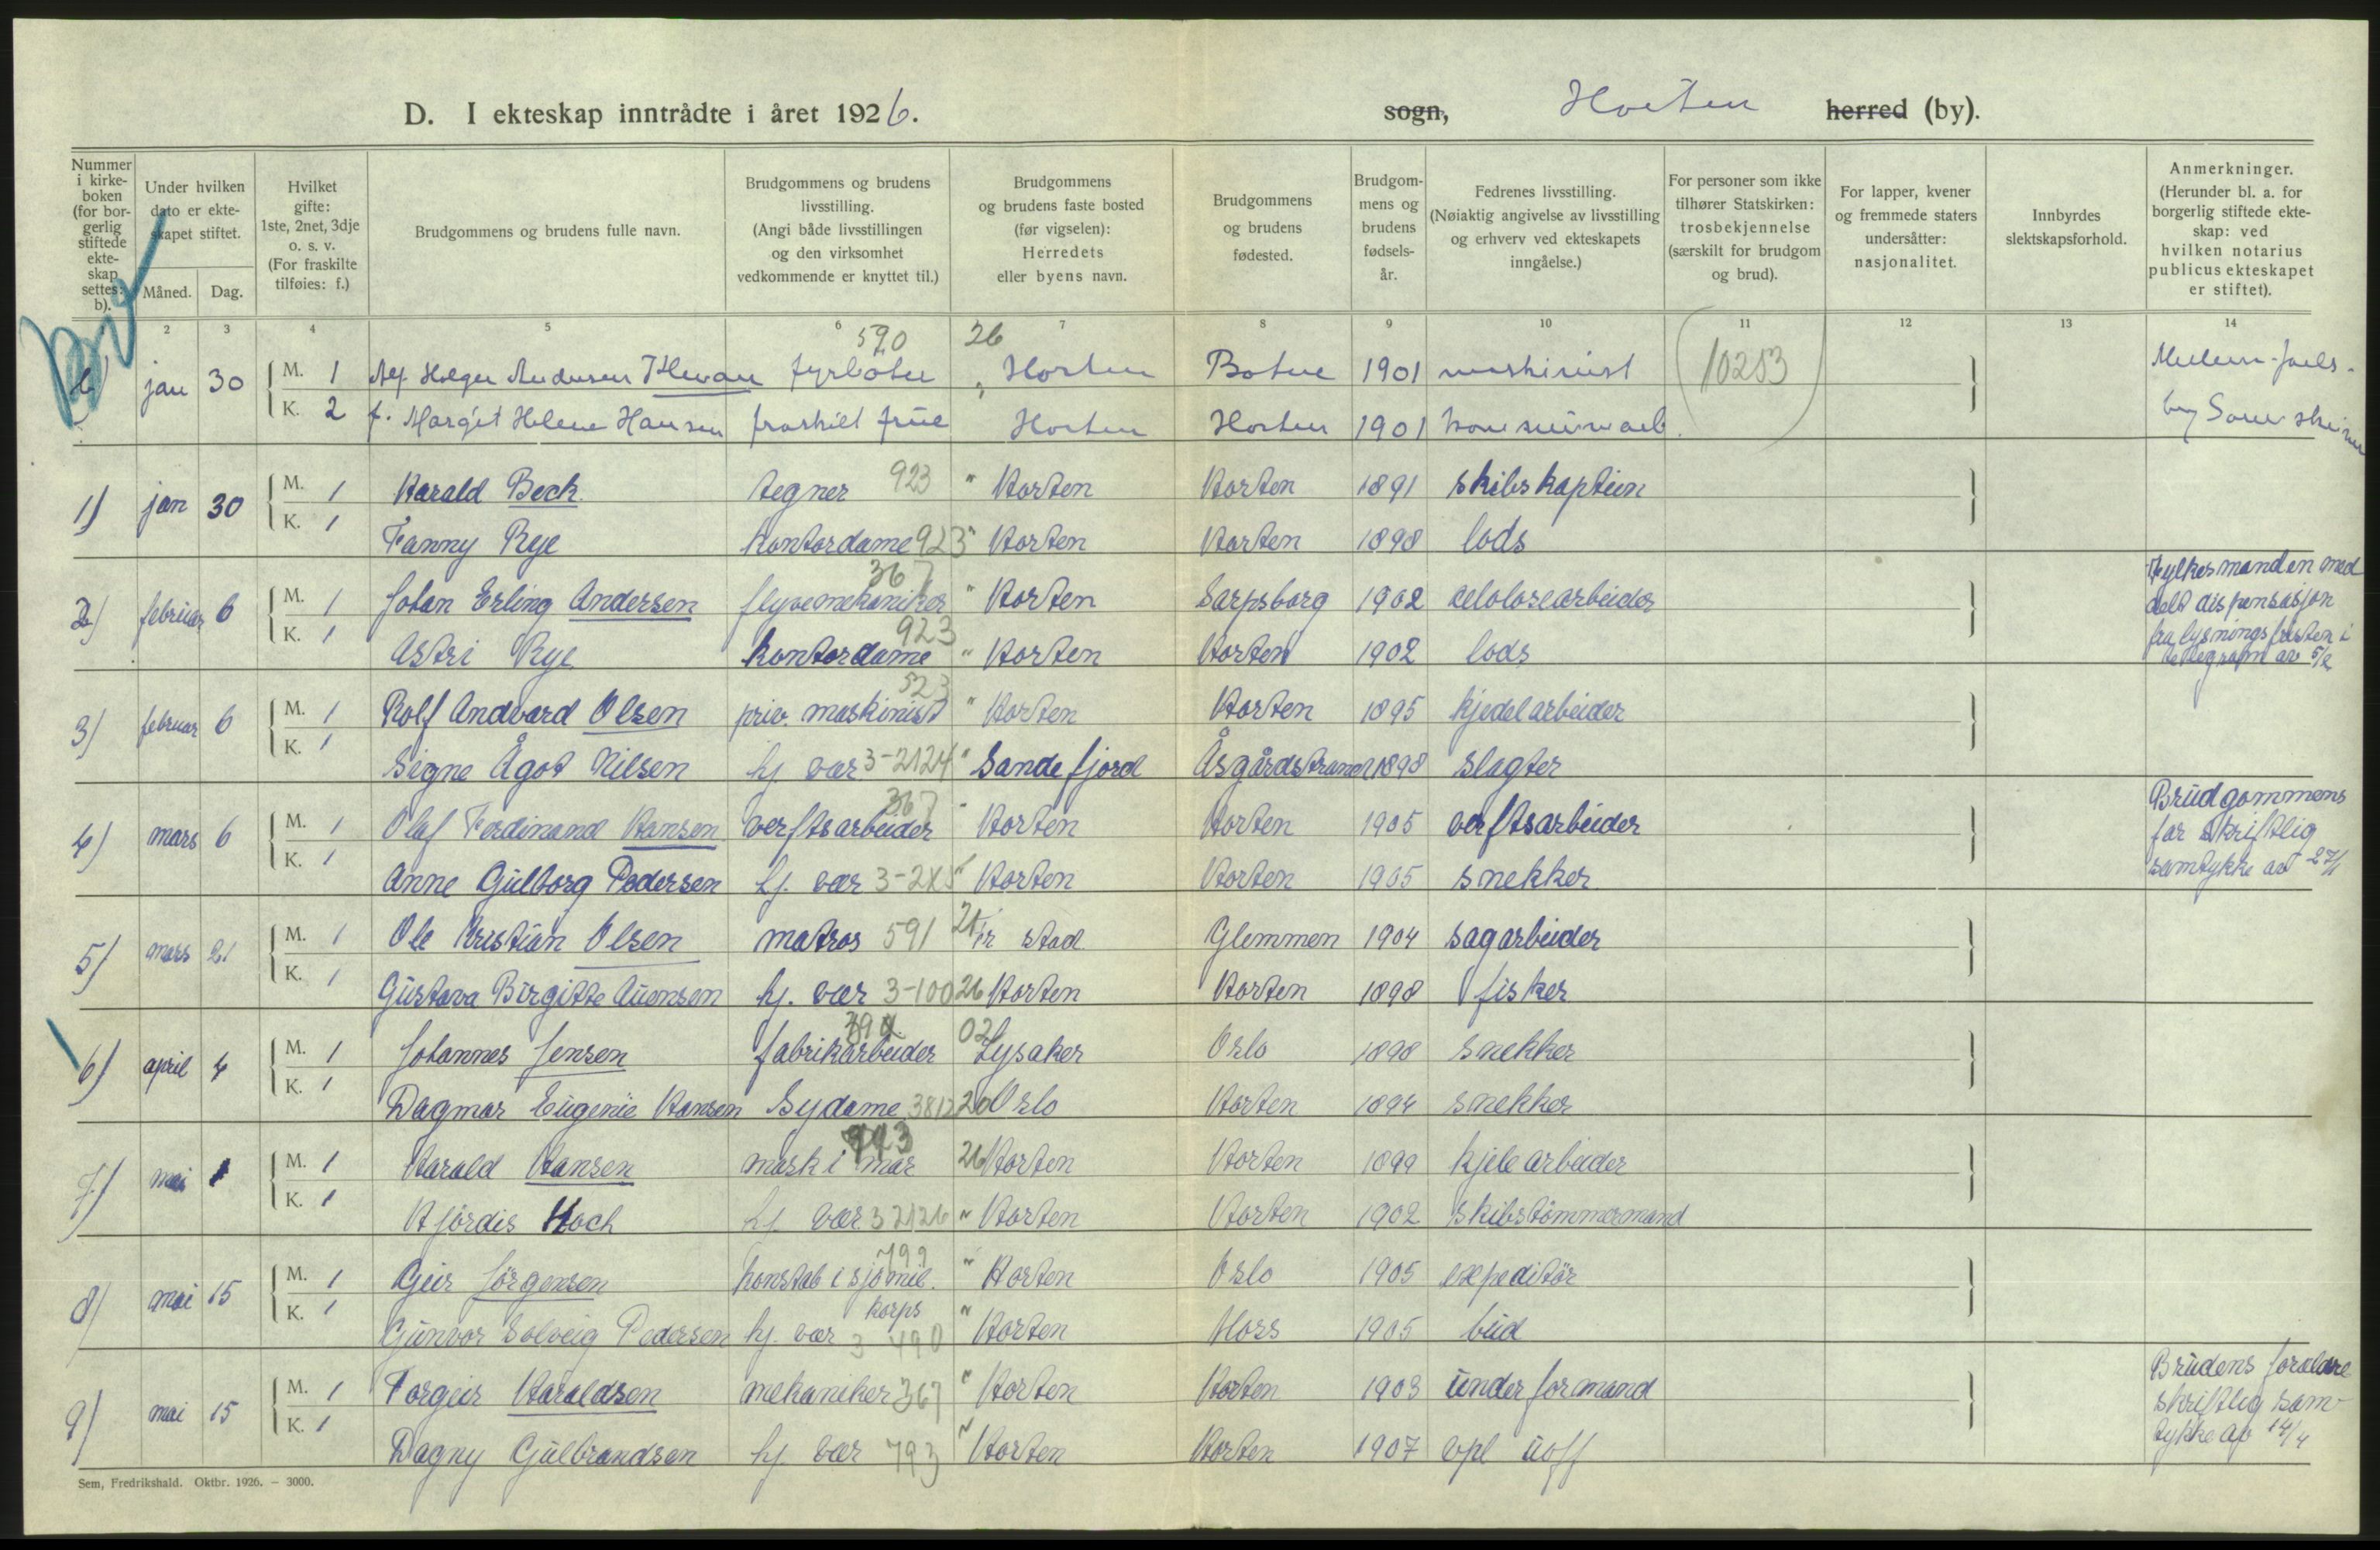 D. I ekteskap inntrådte i året 1926.
sogn, Horten herred (by).
Nummer i kirkeboken (for borgerlig stiftede ekteskap settes: b).
Under hvilken dato er ekteskapet stiftet.
Måned. Dag.
Hvilket gifte: 1ste, 2net, 3dje o. s. v. (For fraskilte tilføies: f.)
Brudgommens og brudens fulle navn.
Brudgommens og brudens livsstilling. (Angi både livsstillingen og den virksomhet vedkommende er knyttet til.)
Brudgommens og brudens faste bosted (før vigselen): Herredets eller byens navn.
Brudgommens og brudens fødested.
Brudgommens og brudens fødselsår.
Fedrenes livsstilling. (Nøiaktig angivelse av livsstilling og erhverv ved ekteskapets inngåelse.)
For personer som ikke tilhører Statskirken: trosbekjennelse (særskilt for brudgom og brud).
For lapper, kvener og fremmede staters undersåtter: nasjonalitet.
Innbyrdes slektskapsforhold.
Anmerkninger. (Herunder bl. a. for borgerlig stiftede ekteskap: ved hvilken notarius publicus ekteskapet er stiftet).
2 3 4 5 6 7 8 9 10 11 12 13 14
590 26
jan 30 M. 1 Alf Holger Andersen fyrböter Horten Botne 1901 maskinist 10253
K. 2 f. Margit Helene Hansen fraskilt frue Horten Horten 1901
1) jan 30 M. 1 Harald Beck tegner 923 " Horten Horten 1891 skibskaptein
K. 1 Fanny Rye kontordame 923 " Horten Horten 1898 lods
367
2) februar 6 M. 1 Johan Erling Andersen flyvemekaniker " Horten Sarpsborg 1902 celolosearbeider
923
K. 1 Astri Rye kontordame " Horten Horten 1902 lods
Fylkesmanden med
delt dispensasjon
fra lysningsfristen i
telegram av 5/2
523
3) februar 6 M. 1 Rolf Andvard Olsen priv. maskinist " Horten Horten 1895 kjedelarbeider
K. 1 Signe Ågot Nilsen hj. vær 3-2124 " Sandefjord Åsgårdstrand 1898 slagter
367
4) mars 6 M. 1 Olaf Ferdinand Hansen verftsarbeider " Horten Horten 1905 verftsarbeider
K. 1 Anne Gulborg Pedersen hj. vær Horten Horten 1905 snekker
Brudgommens
far skriftlig
samtykke av 27/1
5) mars 21 M. 1 Ole Kristian Olsen matros 591 stad Glemmen 1904 sagarbeider
K. 1 Gustava Birgitte Auensen hj. vær 3-100 26 Horten Horten 1898 fisker
02
6) april 4 M. 1 Johannes Jensen fabrikarbeider Lysaker Oslo 1898 snekker
K. 1 Dagmar Eugenie Hansen Sydame 3812 20 Oslo Horten 1894 snekker
7) mai 1 M. 1 Harald Hansen mask i mar 26 Horten Horten 1899 kjelearbeider
K. 1 Hjördis Hoch hj. vær 3 2126 " Horten Horten 1902 skibstömmermand
799
8) mai 15 M. 1 Geir Jörgensen konstab i sjömil. korps " Horten Oslo 1905 expeditör
K. 1 Gunvor Solveig Pedersen hj. vær 3 490 " Horten Moss 1905 bud
9) mai 15 M. 1 Torgeir Haraldsen mekaniker 367 " Horten Horten 1903 underformand
K. 1 Dagny Gulbrandsen hj. vær 793 " Horten Horten 1907 vpl uoff
Brudens foraldre
skriftlig sam-
tykke av 14/4
Sem, Fredrikshald. Oktbr. 1926. — 3000.